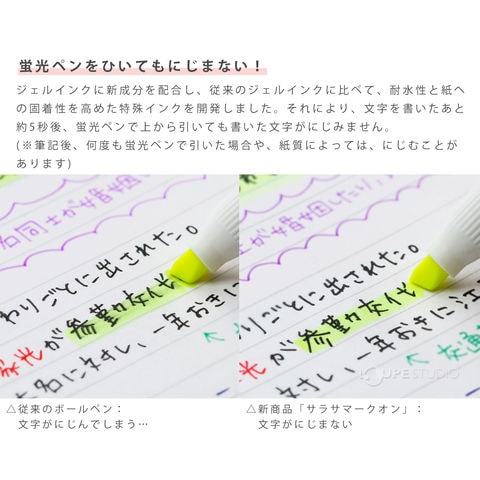 蛍光ペンをひいてもにじまない！
ジェルインクに新成分を配合し、従来のジェルインクに比べて、耐水性と紙へ
の固着性を高めた特殊インクを開発しました。それにより、文字を書いたあと
約5秒後、蛍光ペンで上から引いても書いた文字がにじみません。
(※筆記後、何度も蛍光ペンで引いた場合や、紙質によっては、にじむことが
あります)
名同士が婚姻
わりごとに出された。
家光が参勤交代
大名に対し、一年おきに
が婚姻したり、
りごとに出された。
光が参勤交代
対し、一年おきに江
交通
LOUPE STUDIO
△従来のボールペン：
文字がにじんでしまう…
△新商品「サラサマークオン」：
文字がにじまない